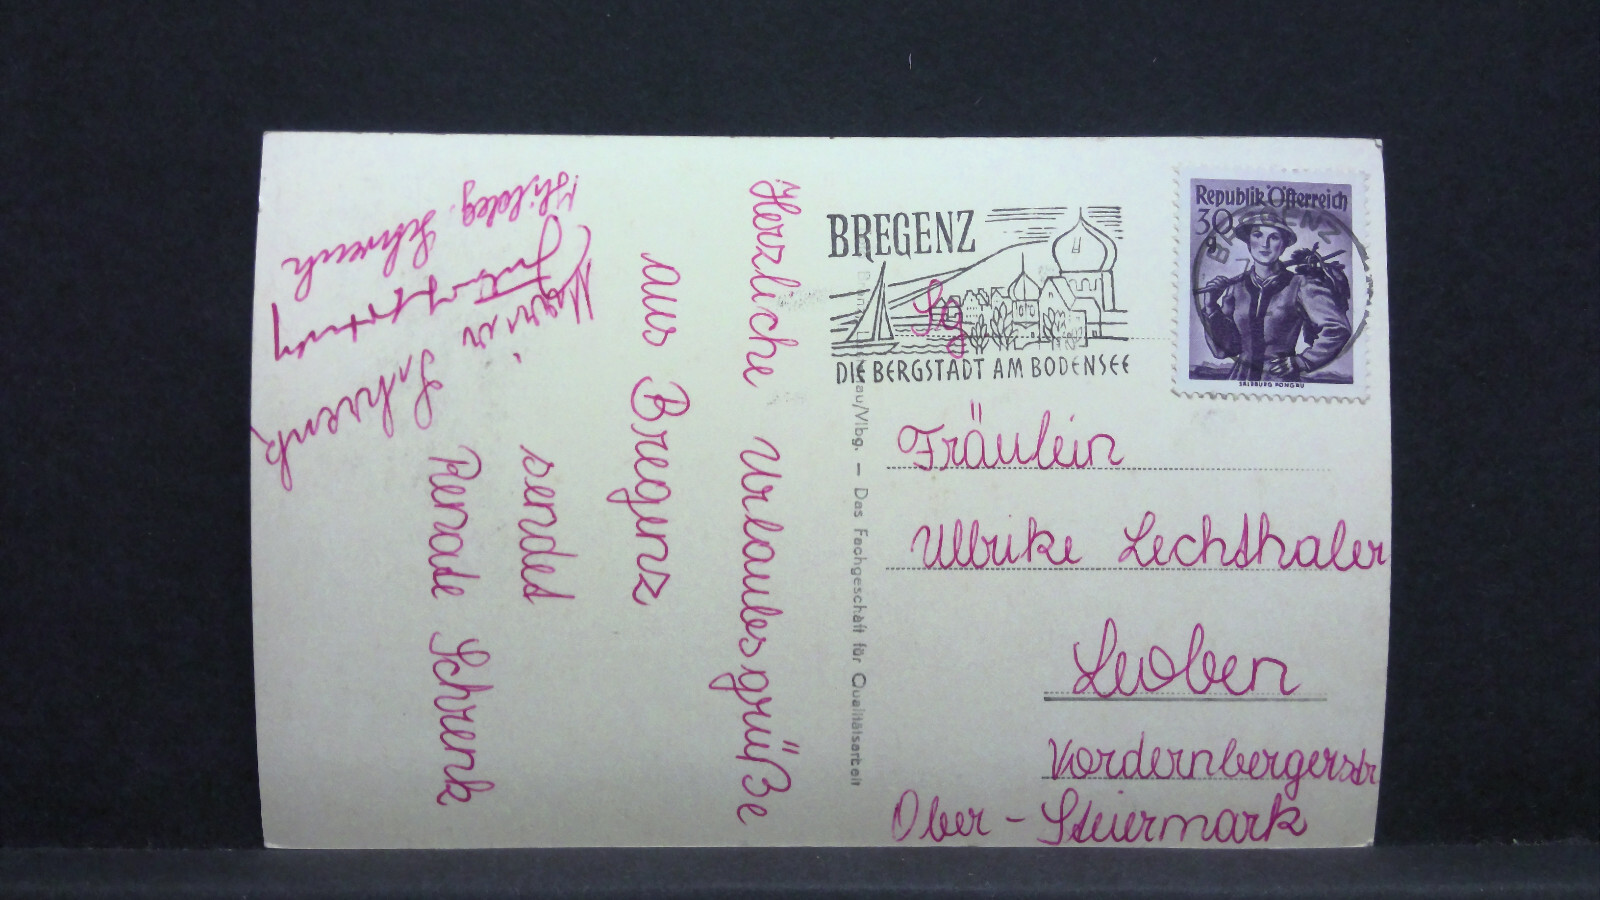 Herzliche Urlaubsgrüße
aus Bregenz
sendet
Renate Schrenk
Schrenk
Hildeg. Schrenk
BREGENZ
DIE BERGSTADT AM BODENSEE
Republik Österreich
30 g
SALZBURG PONGAU
BREGENZ
Sg
Fräulein
Ullrike Lechthaler
Leoben
Vordernbergerstr
Ober - Steiermark
/Vlbg. — Das Fachgeschäft für Qualitätsarbeit